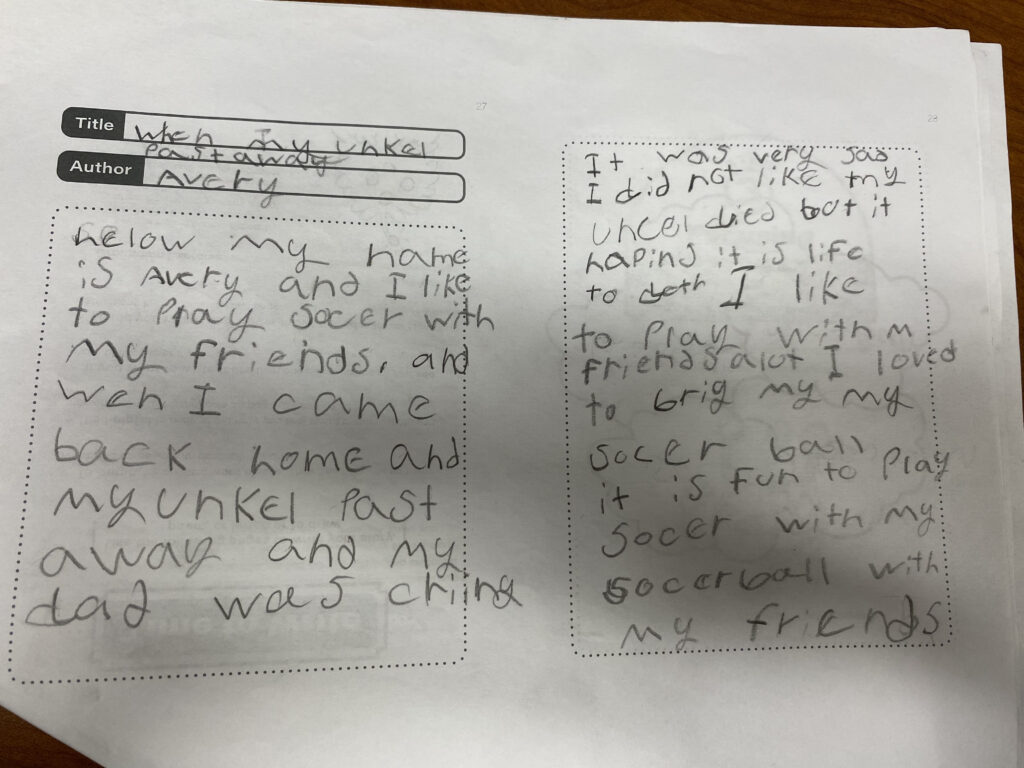 27
Title
When my unkel
past away
Author
Avery
helow my name
is Avery and I like
to Play Socer with
My friends, and
wen I came
back home and
My unkel Past
away and my
dad was criing
28
It was very sad
I did not like my
uncel died but it
hapind it is life
to deth I like
to Play with m
friends alot I loved
to brig my my
socer ball
it is fun to Play
socer with my
socerball with
my friends